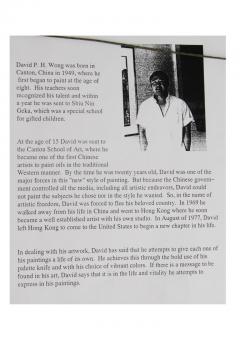 David P. H. Wong was born in
Canton, China in 1949, where he
first began to paint at the age of
eight. His teachers soon
recognized his talent and within
a year he was sent to Shiu Nin
Geka, which was a special school
for gifted children.
At the age of 15 David was sent to
the Canton School of Art, where he
became one of the first Chinese
artists to paint oils in the traditional
Western manner. By the time he was twenty years old, David was one of the
major forces in this "new" style of painting. But because the Chinese govern-
ment controlled all the media, including all artistic endeavors, David could
not paint the subjects he chose nor in the style he wanted. So, in the name of
artistic freedom, David was forced to flee his beloved country. In 1969 he
walked away from his life in China and went to Hong Kong where he soon
became a well established artist with his own studio. In August of 1977, David
left Hong Kong to come to the United States to begin a new chapter in his life.
In dealing with his artwork, David has said that he attempts to give each one of
his paintings a life of its own. He achieves this through the bold use of his
palette knife and with his choice of vibrant colors. If there is a message to be
found in his art, David says that it is in the life and vitality he attempts to
express in his paintings.